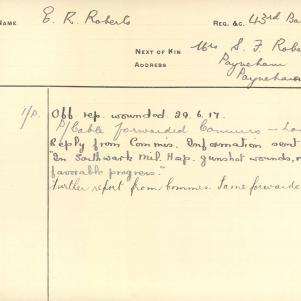 NAME E. R. Roberts REG. &C. 43rd Ba
NEXT OF KIN Mrs S. F. Robe
ADDRESS Payneham
Payneham
Off rep. wounded. 29.6.17.
P/Cable forwarded Commrs
Reply from Commrs. Information sent
"In Southwark Mil. Hosp. gunshot wounds,
favorable progress."
Further report from Commrs. Same forwarde